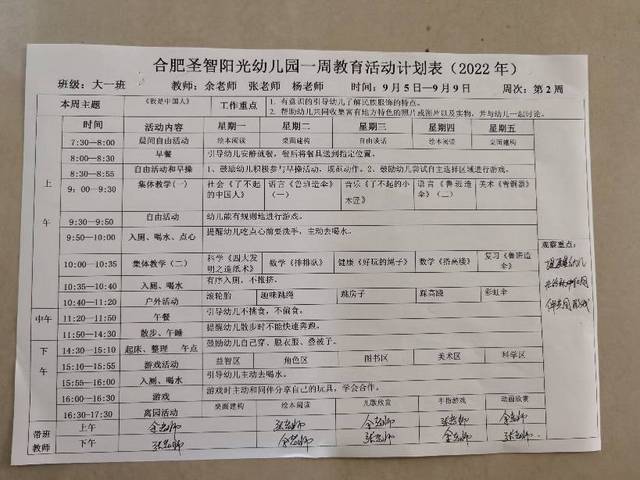 合肥圣智阳光幼儿园一周教育活动计划表（2022 年）
班级：大一班 教师：余老师 张老师 杨老师 时间：9 月 5 日—9 月 9 日 周次：第 2 周
本周主题 《我是中国人》 工作重点 1. 有意识的引导幼儿了解民族服饰的特点。
2. 帮助幼儿共同收集富有地方特色的照片或图片以及实物，并与幼儿一起讨论。
时间 活动内容 星期一 星期二 星期三 星期四 星期五
7:30—8:00 晨间自由活动 绘本阅读 桌面建构 自由谈话 绘本阅读 桌面建构
上午
8:00—8:30 早餐 引导幼儿安静就餐，餐后将餐具送到指定位置。
8:30—8:55 自由活动和早操 1、鼓励幼儿积极参与早操活动，规范动作。2、鼓励幼儿尝试自主选择区域进行游戏。
9：00—9:30 集体教学(一) 社会《了不起的中国人》 语言《鲁班造伞》（一） 音乐《了不起的小木匠》 语言《鲁班造伞》（二） 美术《青铜器》
9:30—9:50 自由活动 幼儿能有规则地进行游戏。
9:50—10:00 入厕、喝水、点心 提醒幼儿吃点心前要洗手，主动去喝水。
10:00—10:35 集体教学（二） 科学《四大发明之造纸术》 数学《排排队》 健康《好玩的绳子》 数学《搭高楼》 复习《鲁班造伞》
10:35—10:40 入厕、喝水 有序入厕，不推挤。
10:40—11:20 户外活动 滚轮胎 趣味跳绳 跳房子 踩高跷 彩虹伞
观察重点：
中午
11:20—11:50 午餐 引导幼儿不挑食，不偏食。
11:50—14:30 散步、午睡 提醒幼儿散步时不能快速奔跑。
下午
14:30—15:10 起床、整理 午点 鼓励幼儿自己穿、脱衣服、叠被子。
15:10—15:55 游戏活动 益智区 角色区 图书区 美术区 科学区
15:55—16:00 入厕、喝水 引导幼儿主动去喝水。
16:00—16:30 游戏 游戏时主动和同伴分享自己的玩具，学会合作。
16:30-17:30 离园活动 桌面建构 绘本阅读 儿歌欣赏 手指游戏 动画欣赏
带班教师
上午 余老师 张老师 余老师 张老师 余老师
下午 张老师 余老师 张老师 余老师 张老师